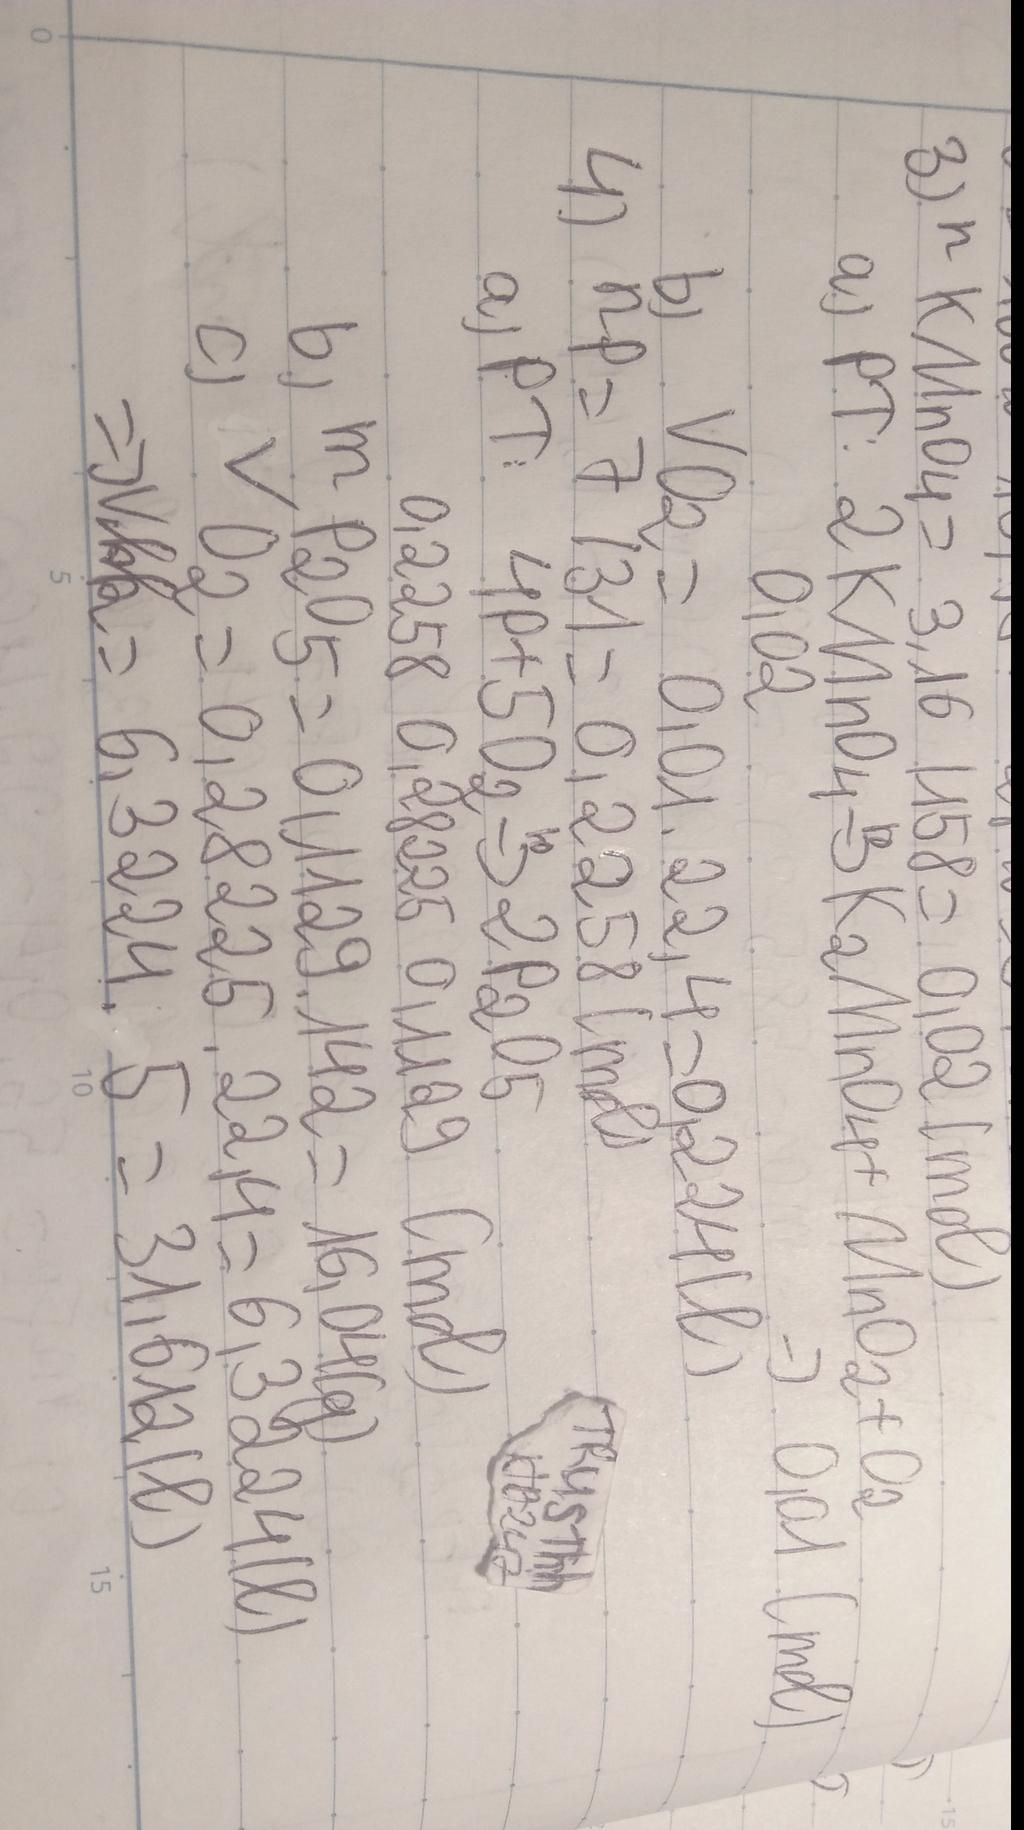 3) n KMnO4 = 3,16 : 158 = 0,02 (mol)
a) PT: 2KMnO4 → K2MnO4 + MnO2 + O2
0,02 → 0,01 (mol)
b) VO2 = 0,01 . 22,4 = 0,224 (l)
4) nP = 7 : 31 = 0,2258 (mol)
a) PT: 4P + 5O2 → 2P2O5
0,2258 0,28225 0,1129 (mol)
b) m P2O5 = 0,1129 . 142 = 16,04 (g)
c) V O2 = 0,28225 . 22,4 = 6,3224 (l)
=> Vkk = 6,3224 . 5 = 31,612 (l)
TRUSThh
0
5
10
15
15